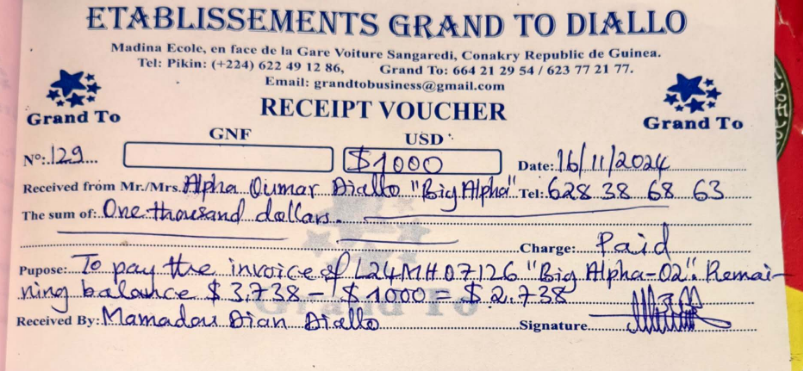 ETABLISSEMENTS GRAND TO DIALLO
Madina Ecole, en face de la Gare Voiture Sangaredi, Conakry Republic de Guinea.
Tel: Pikin: (+224) 622 49 12 86, Grand To: 664 21 29 54 / 623 77 21 77.
Email: grandtobusiness@gmail.com
Grand To RECEIPT VOUCHER Grand To
GNF USD
N°: 129 $1000 Date: 16/11/2024
Received from Mr./Mrs. Alpha Oumar Diallo "Big Alpha" Tel: 628 38 68 63
The sum of: One thousand dollars.
Charge: Paid
Pupose: To pay the invoice of L24MH07126 "Big Alpha-02". Remai-
ning balance $3.738 - $1000 = $2.738
Grand To
Received By: Mamadou Dian Diallo Signature